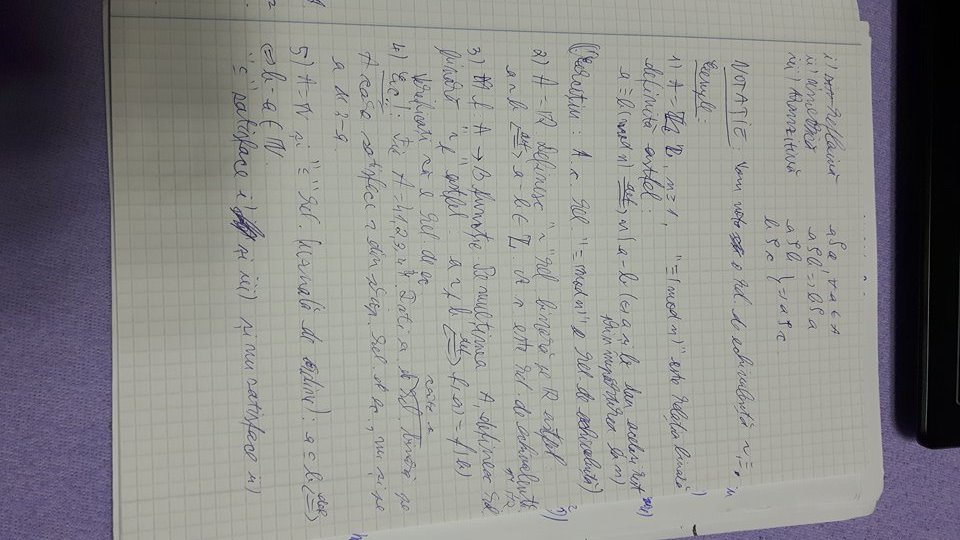 i) reflexivă aρa, ∀ a ∈ A
ii) simetrică aρb => bρa
iii) tranzitivă aρb
bρc } => aρc
NOTAȚIE: Vom nota o rel. de echivalență ~, ≡.
Exemple:
1) A = ℤ, n ≥ 1, "≡(mod n)" este relația binară
definită astfel:
a ≡ b (mod n) <=>def n | a-b (<=> a și b dau același rest
prin împărțirea la n)
(Exercițiu: A. c. rel. "≡(mod n)" e rel. de echivalență)
2) A = ℝ Definesc "~" rel binară pe ℝ astfel
a ~ b <=>def a-b ∈ ℤ. A. c. este rel. de echivalență
pe ℝ
3) f: A → B funcție Pe mulțimea A, definesc rel
binară "~f" astfel: a ~f b <=>def f(a) = f(b)
Verificați că e rel. de ec.
4) Ex.!: Fie A = {1,2,3,4}. Dați a rel binară pe
A care satisface 2 din prop. rel. de ec., nu și pe
a 3-a.
5) A = ℕ și "≤" rel. (uzuală de ordine): a ≤ b <=>def
<=> b-a ∈ ℕ.
"≤" satisface i) și iii) și nu satisface ii)